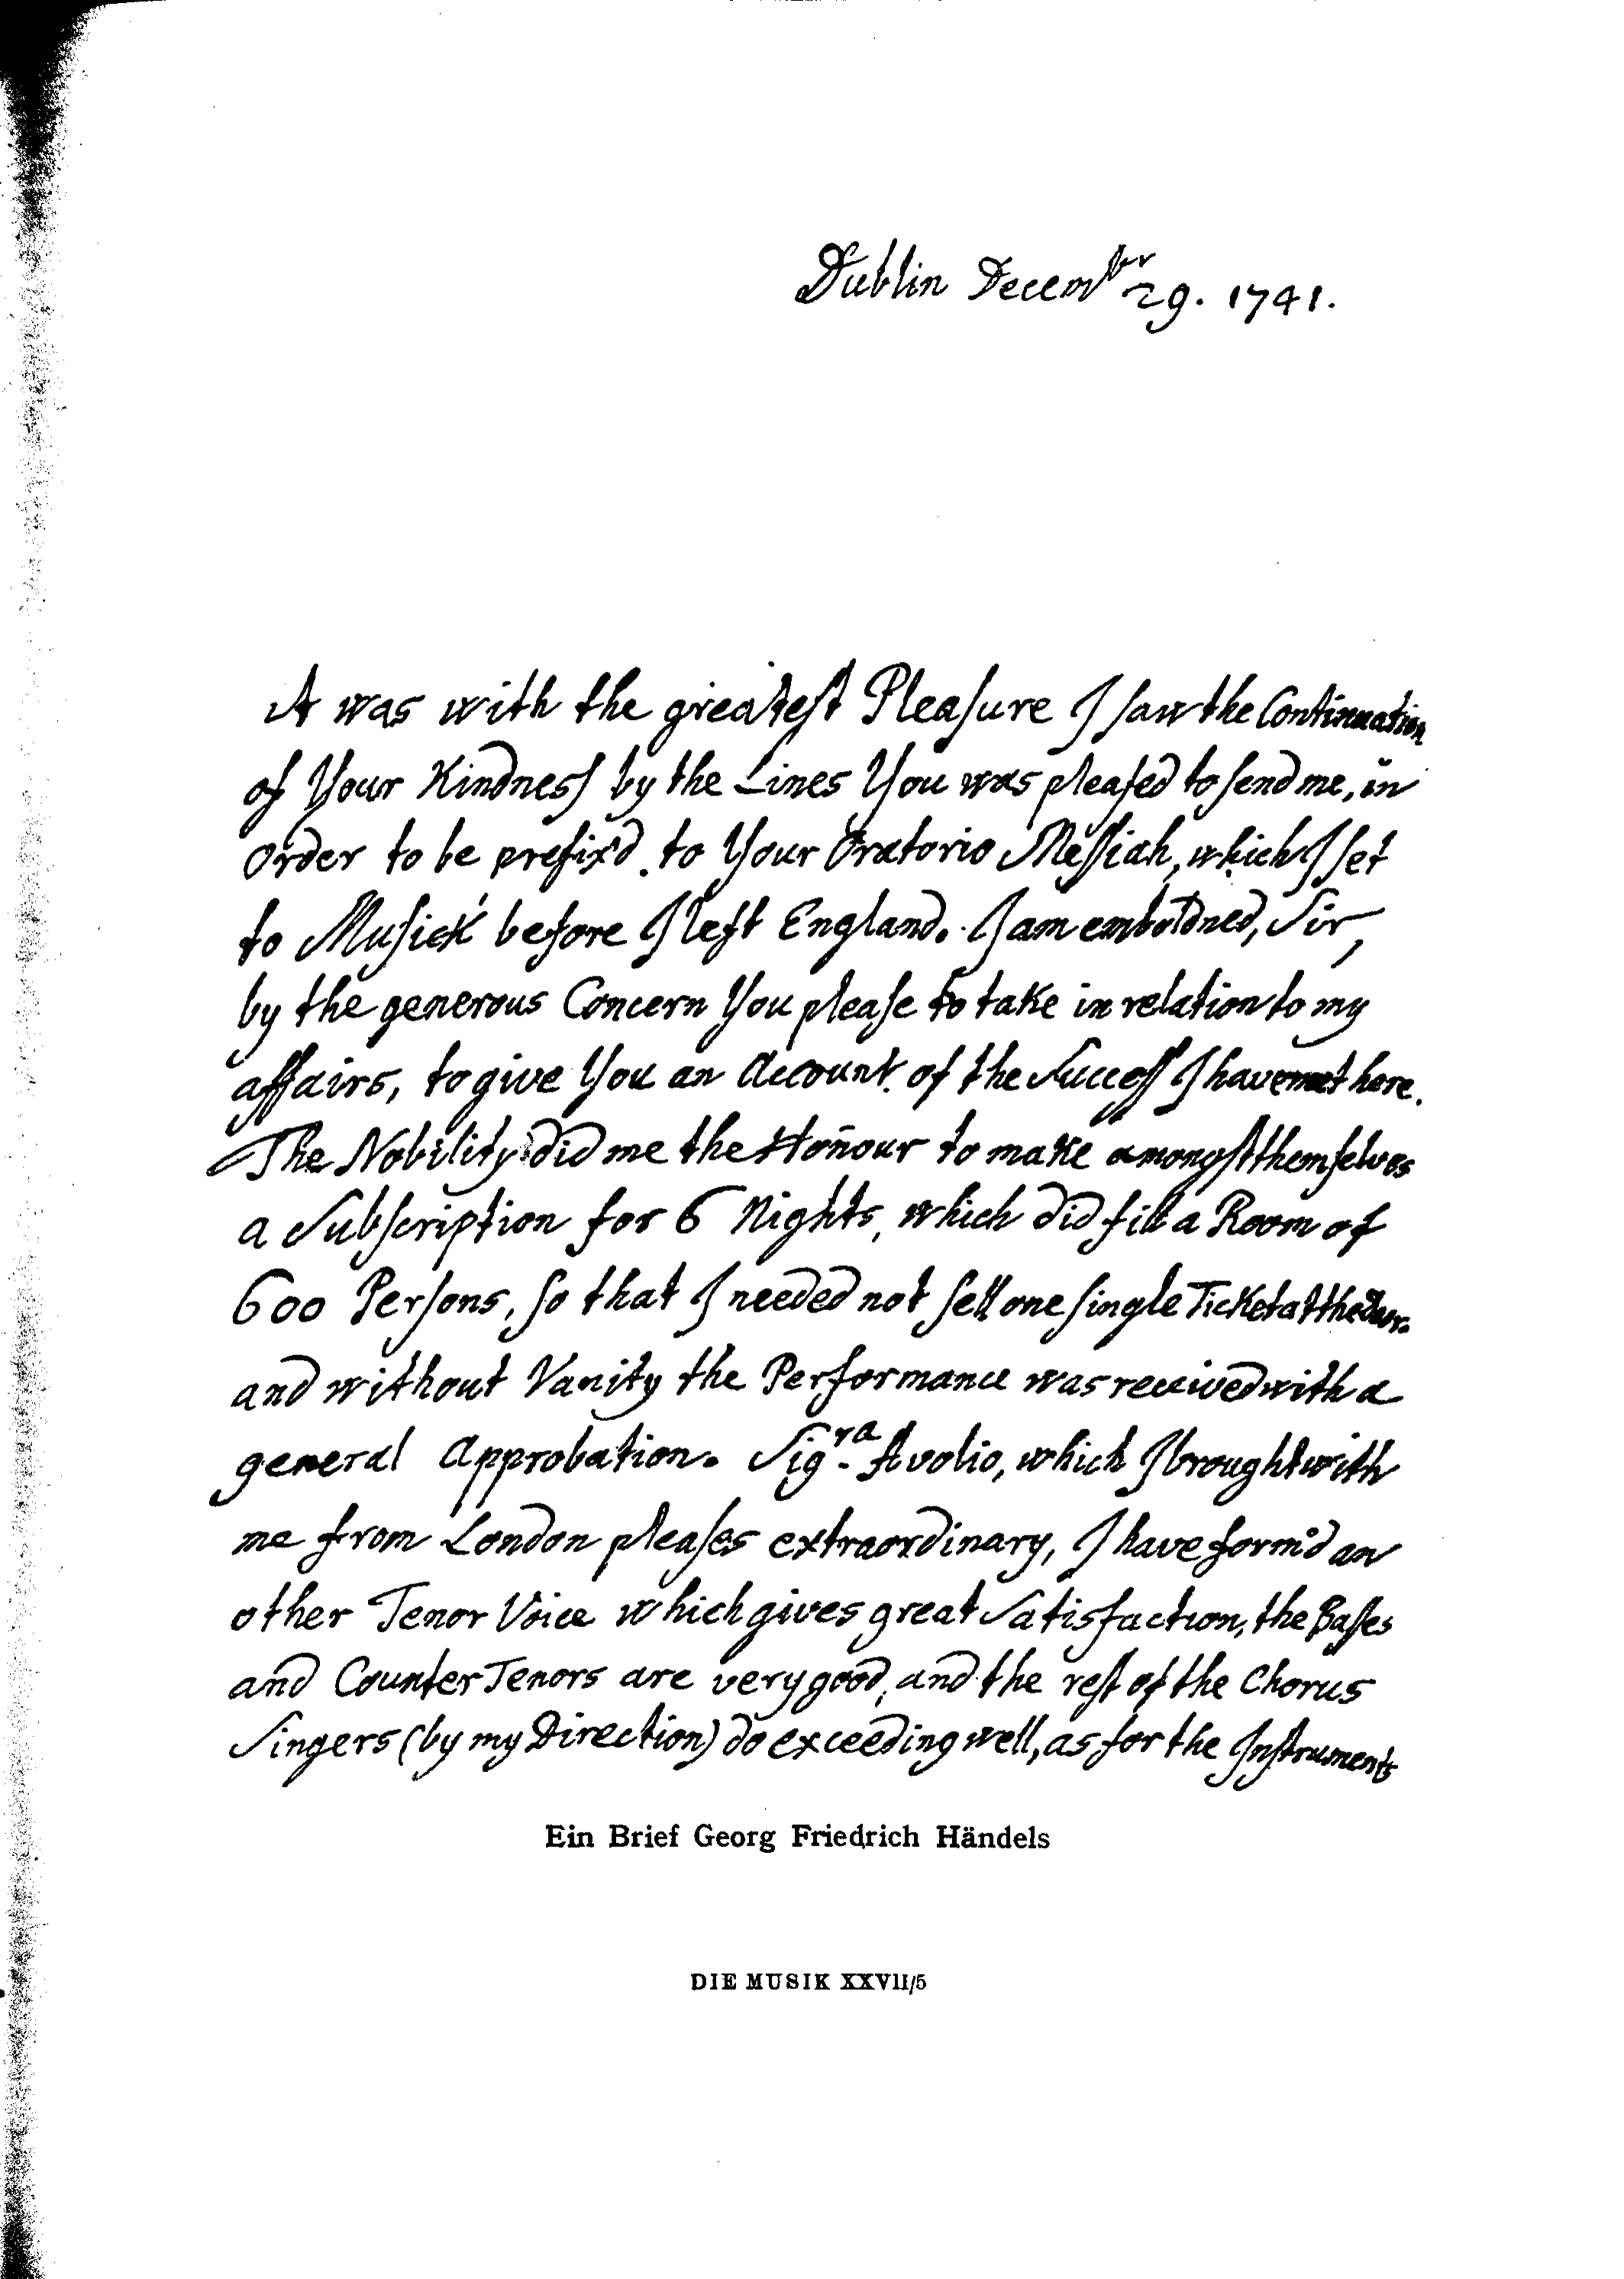 Dublin Decem^br 29. 1741.
It was with the greatest Pleasure I saw the Continuation
of Your Kindness by the Lines You was pleased to send me, in
order to be prefix'd to Your Oratorio Messiah, which I set
to Musick before I left England. I am emboldned, Sir,
by the generous Concern You please to take in relation to my
affairs, to give You an Account of the Success I have met here.
The Nobility did me the Hoñour to make amongst themselves
a Subscription for 6 Nights, which did fill a Room of
600 Persons, so that I needed not sell one single Ticket at the Door.
and without Vanity the Performance was received with a
general Approbation. Sig^ra Avolio, which I brought with
me from London pleases extraordinary, I have form'd an
other Tenor Voice which gives great Satisfaction, the Basses
and Counter Tenors are very good, and the rest of the Chorus
Singers (by my Direction) do exceeding well, as for the Instruments
Ein Brief Georg Friedrich Händels
DIE MUSIK XXVII/5